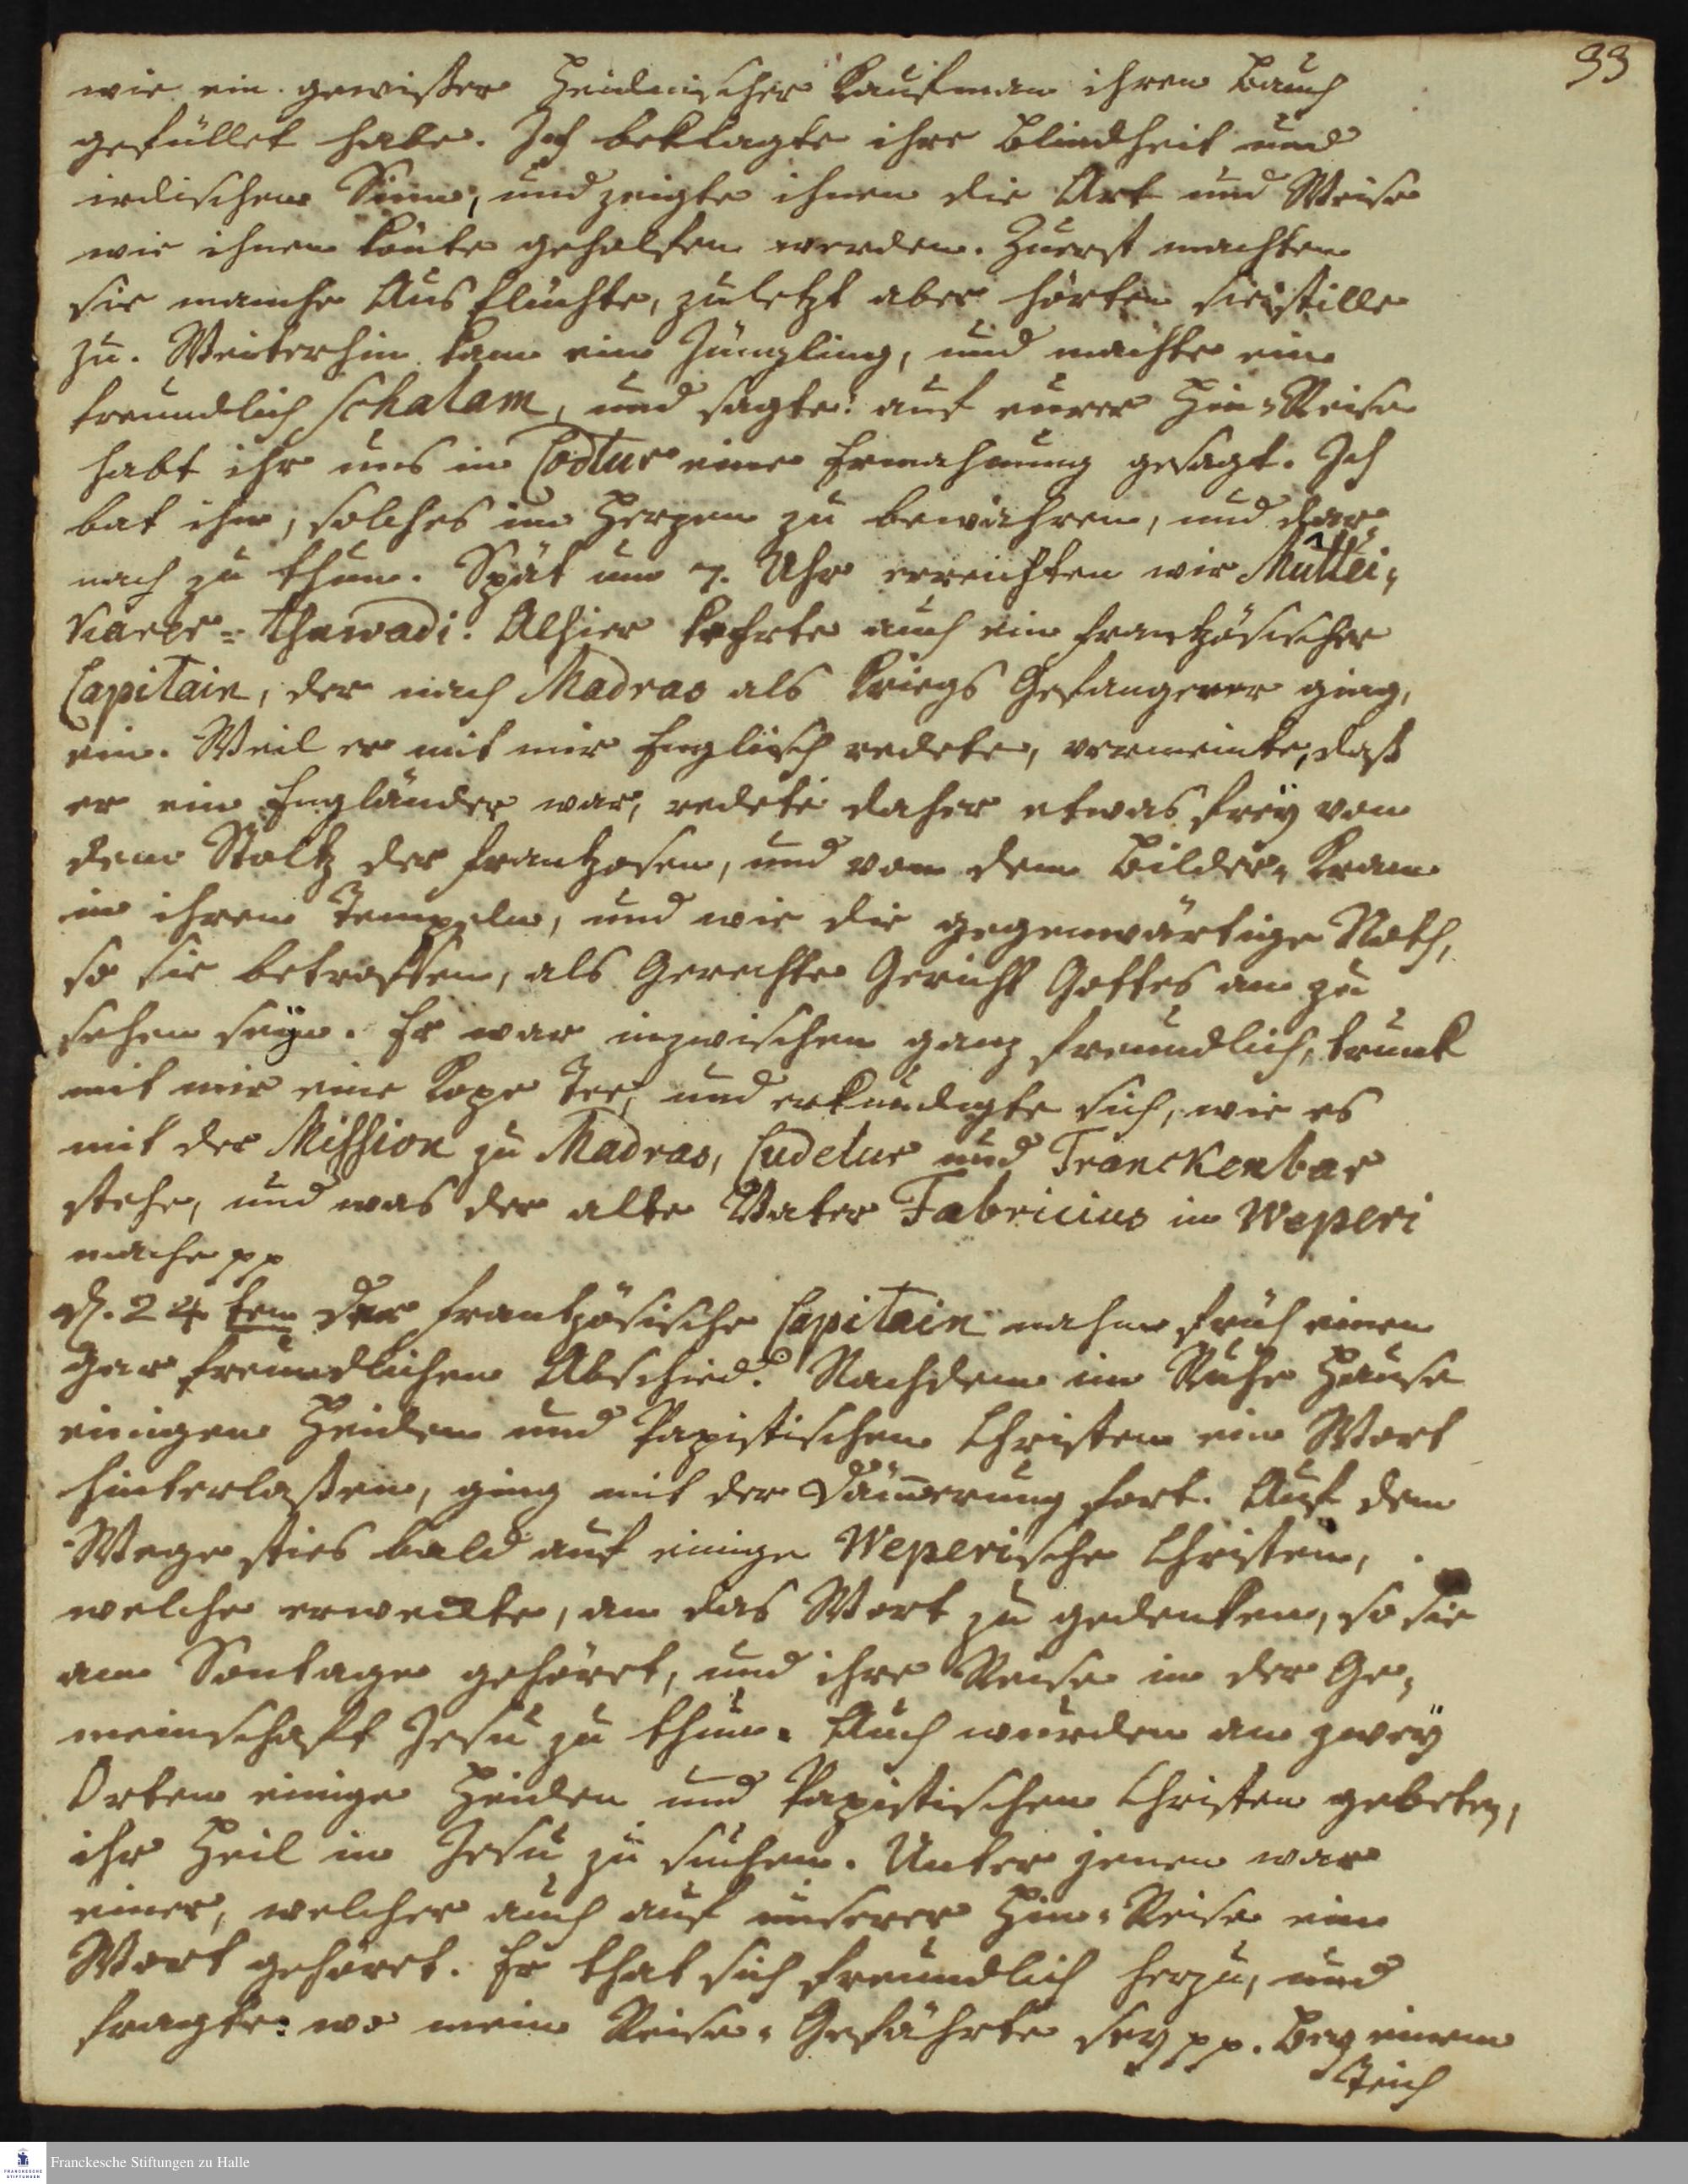 33
wie ein gewißer Heidnischer Kaufman ihren Bauch
gefüllet habe. Ich beklagte ihre Blindheit und
irdischen Sinn, und zeigte ihnen die Art und Weise
wie ihnen köñte geholfen werden. Zuerst machten
sie manche Ausflüchte, zuletzt aber hörten sie stille
zu. Weiterhin kam ein Jüngling, und machte ein
freundlich schalam, und sagte: auf eurer Hin-Reise
habt ihr uns in Codtur eine Ermahnung gesagt. Ich
bat ihn, solches im Herzen zu bewahren, und dar-
nach zu thun. Spät um 7. Uhr erreichten wir Muttei-
Karer-Thawadi. Alhier kehrte auch ein frantzösischer
Capitain, der nach Madras als Kriegs Gefangener ging,
ein. Weil er mit mir Englisch redete, vermeinte, daß
er ein Engländer war, redete daher etwas frey von
dem Stoltz der Frantzosen, und von dem Bilder-Kram
in ihren Tempeln, und wie die gegenwärtige Noth,
so sie betroffen, als Gerechte Gericht Gottes an zu
sehen seyn. Er war inzwischen ganz freundlich, trunk
mit mir eine Kope Tee, und erkundigte sich, wie es
mit der Mission zu Madras, Cudelur und Tranckenbar
stehe, und was der alte Vater Fabricius in Weperi
mache pp
d. 24 ten Der frantzösische Capitain nahm früh einen
Gar freundlichen Abschied. Nachdem im Ruhe Hause
einigen Heiden und Papistischen Christen ein Wort
hinterlaßen, ging mit der Däm̄erung fort. Auf dem
Wege sties bald auf einige Weperische Christen,
welche erweckte, an das Wort zu gedenken, so sie
am Sontage gehöret, und ihre Reise in der Ge-
meinschaft Jesu zu thun. Auch wurden an zweÿ
Orten einige Heiden und Papistischen Christen gebeten,
ihr Heil in Jesu zu suchen. Unter jenen war
einer, welcher auch auf unserer Hin-Reise ein
Wort gehöret. Er that sich freundlich herzu, und
fragte: wo mein Reise-Gefährte sey pp. Bey einem
Teich
Franckesche Stiftungen zu Halle
FRANCKESCHE
STIFTUNGEN